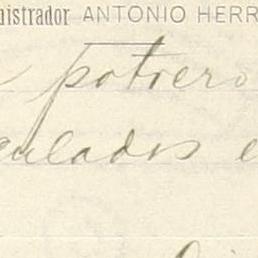 nistrador ANTONIO HERR
potrero
culados e